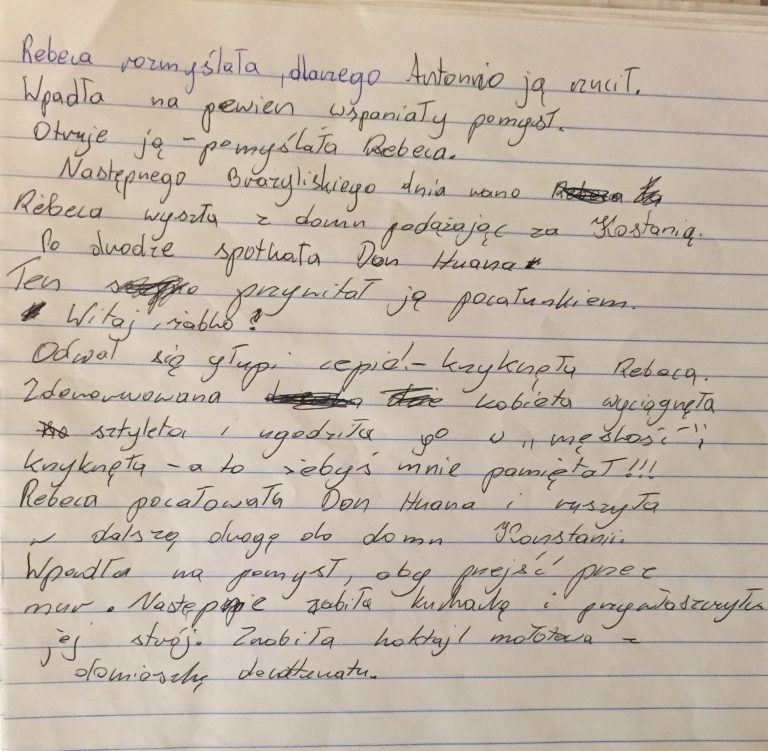 Rebeca rozmyślała, dlaczego Antonnio ją rzucił.
Wpadła na pewien wspaniały pomysł.
Otruje ją - pomyślała Rebeca.
Następnego Brazyliskiego dnia rano
Rebeca wyszła z domu podążając za Kostanią.
Po drodze spotkała Don Huana
Ten przywitał ją pocałunkiem.
Witaj, żabko!
Odwal się głupi cepie! - krzyknęła Rebeca.
Zdenerwowana kobieta wyciągnęła
sztyleta i ugodziła go w "męskość",
krzyknęła - a to żebyś mnie pamiętał!!!
Rebeca pocałowała Don Huana i ruszyła
w dalszą drogę do domu Konstanii.
Wpadła na pomysł, aby przejść przez
mur. Następnie zabiła kucharkę i przywłaszczyła
jej strój. Zrobiła koktajl mołotowa z
domieszką denaturatu.